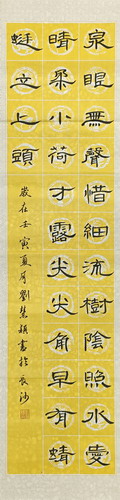 泉眼無聲惜細流樹陰照水愛
晴柔小荷才露尖尖角早有蜻
蜓立上頭
歲在壬寅夏月劉慧穎書於長沙